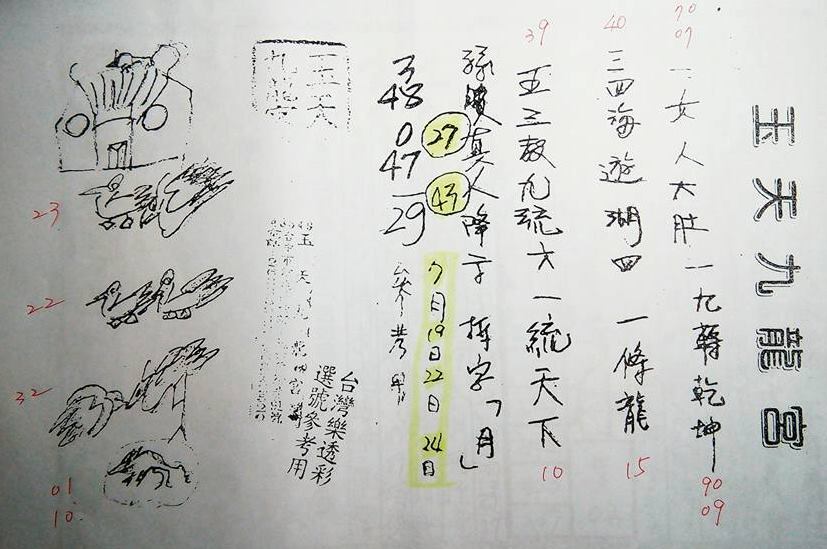 玉天九龍宮
70
07
一女人大肚一九轉乾坤
90
09
40
三四海遊湖四一條龍
15
39
五三教九琉六一統天下
10
孫臏真人降 字「7月」
27
43
7月19日22日24日
3
48
0
47
29
參考用
台灣樂透彩
選號參考用
玉天
23
22
32
01
10